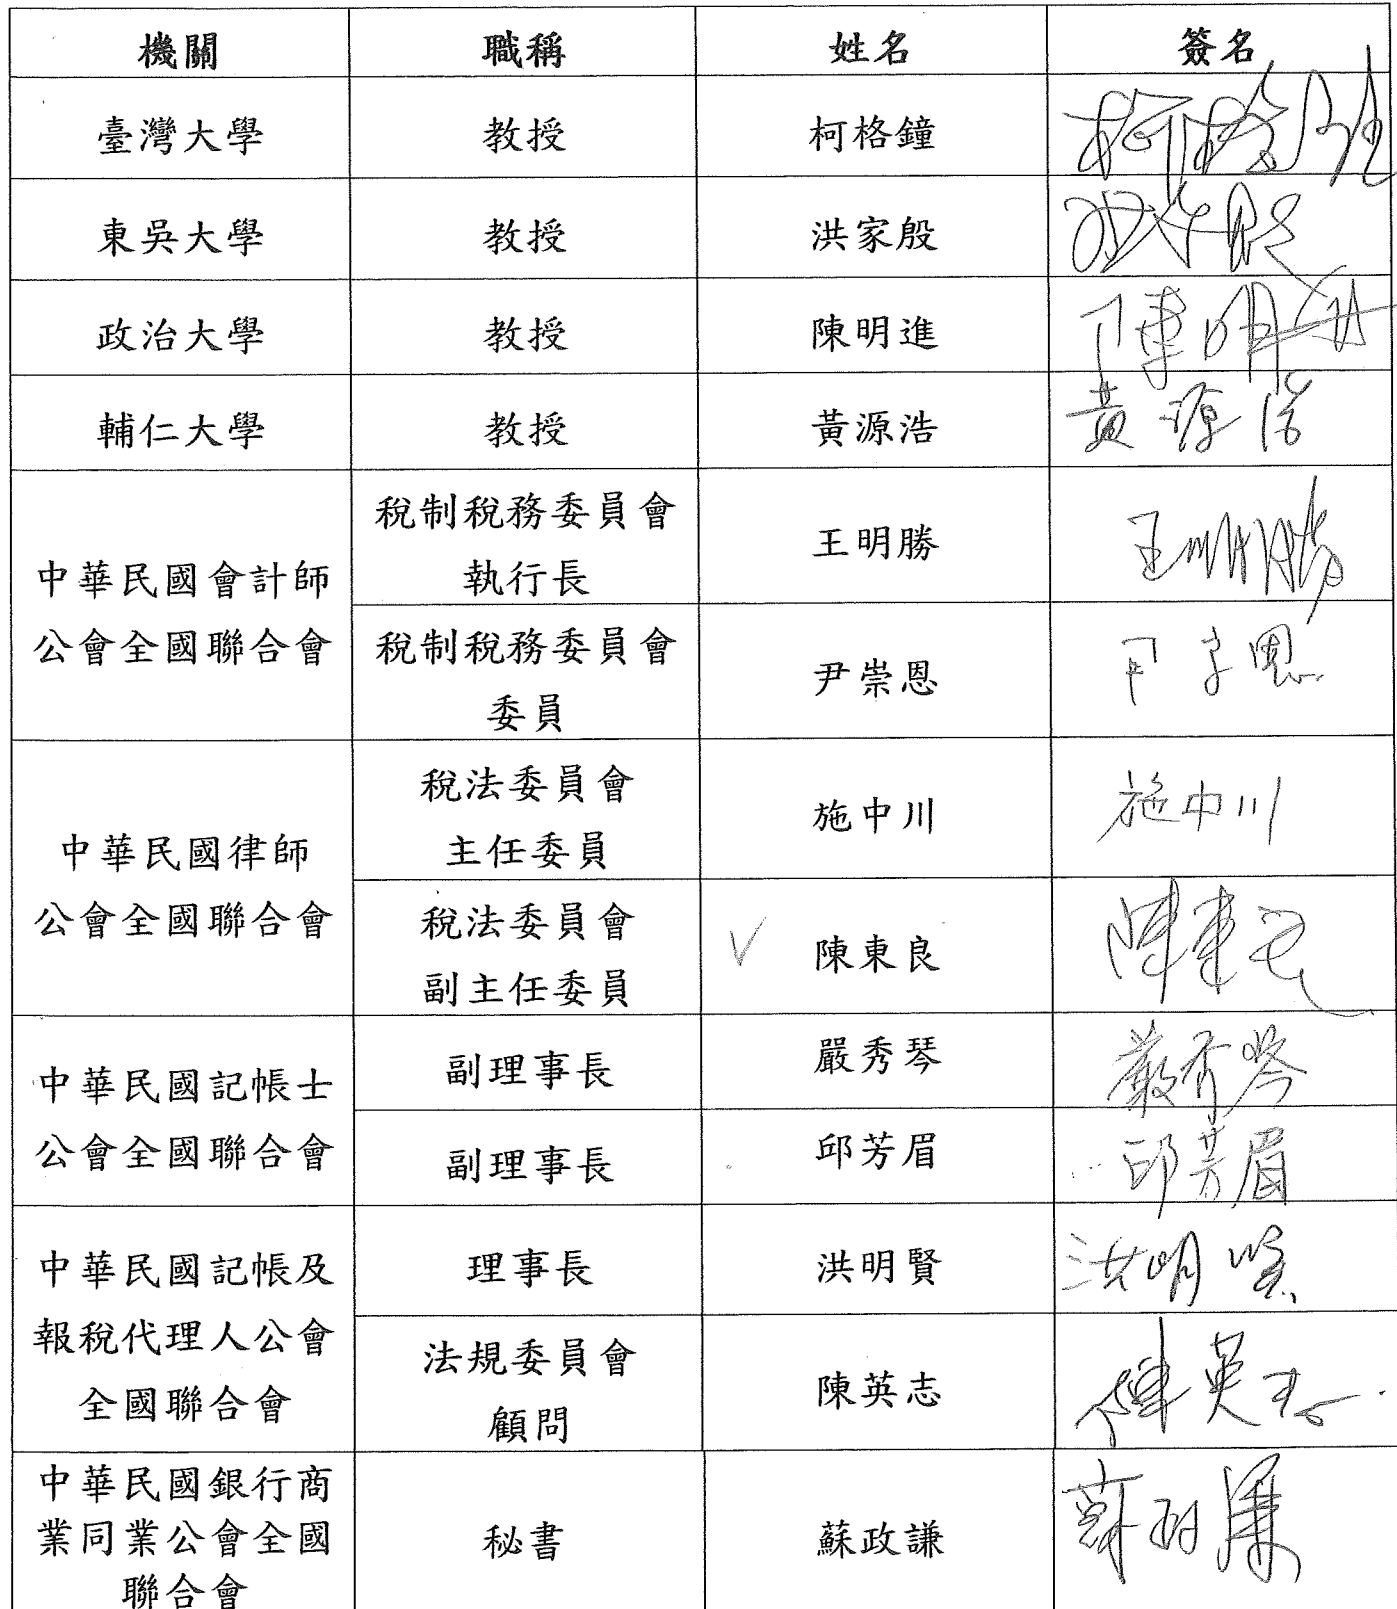 機關 職稱 姓名 簽名
臺灣大學 教授 柯格鐘 柯格鐘
東吳大學 教授 洪家殷 洪家殷
政治大學 教授 陳明進 陳明進
輔仁大學 教授 黃源浩 黃源浩
中華民國會計師
公會全國聯合會
稅制稅務委員會
執行長
王明勝 王明勝
稅制稅務委員會
委員
尹崇恩 尹崇恩
中華民國律師
公會全國聯合會
稅法委員會
主任委員
施中川 施中川
稅法委員會
副主任委員
V 陳東良 陳東良
中華民國記帳士
公會全國聯合會
副理事長 嚴秀琴 嚴秀琴
副理事長 邱芳眉 邱芳眉
中華民國記帳及
報稅代理人公會
全國聯合會
理事長 洪明賢 洪明賢
法規委員會
顧問
陳英志 陳英志
中華民國銀行商
業同業公會全國
聯合會
秘書 蘇政謙 蘇政謙